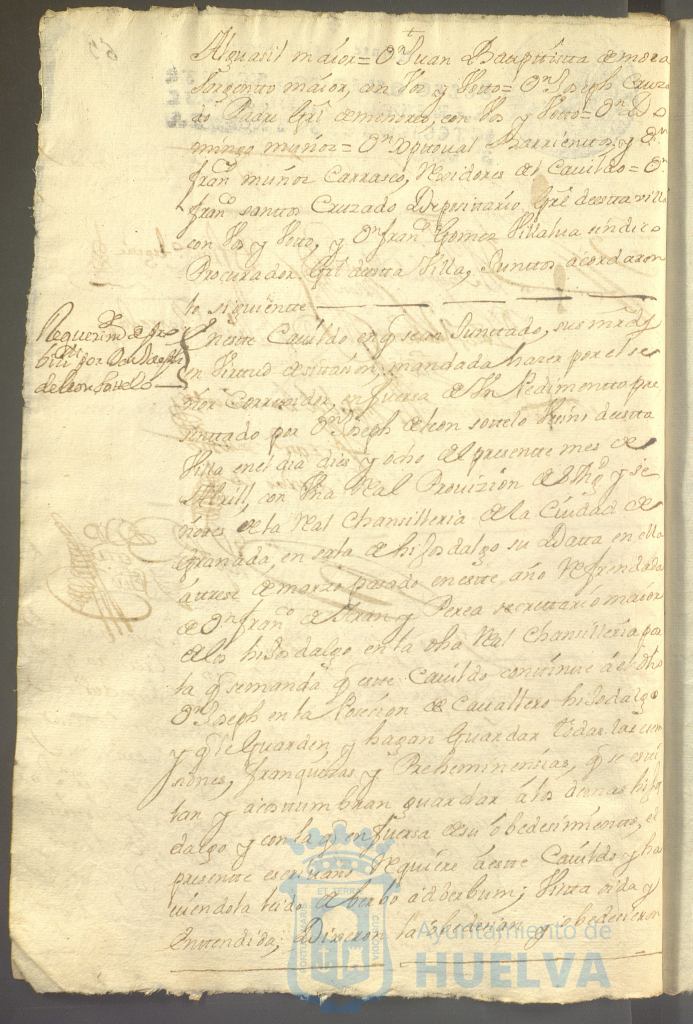 Alguasil maior = Dn Juan Bauptista de mora
Sargentto maior, con Vos y Votto = Dn Joseph Cruza
do Padre Grl de menores, con Vos y Votto = Dn Do
mingo muñoz = Dn Xptoual Barrienttos, y Dn
franco muñoz Carrasco, Rexidores del Cauildo = Dn
franco santtos Cruzado Depositario Grl destta villa
con Vos y Votto, y Dn franco Gomez Villalua sindico
Procurador Grl destta Villa, Junttos acordaron
lo siguientte
Requerimto de pro
bion por Dn Joseph
de leon sottelo
En estte Cauildo en q se an Junttado, sus mrds
en Virtud de sitasion, mandada hazer por el se
ñor Correxidor, en fuersa de Un Pedimentto pre
senttado por Dn Joseph de leon sottelo Vezino destta
Villa en el dia dies y ocho del presentte mes de
Abrill, con Una Real Provizión de S Mgd y se
ñores de la Real Chansilleria de la Ciudad de
Granada, en sala de hijosdalgo su Datta en ella
á trese de marzo pasado en estte año Refrendada
de Dn franco de Aran y Perea secrettario maior
de los hijosdalgo en la dha Real Chansilleria por
la q se manda q estte Cauildo continue á el dho
Dn Joseph en la Posecion de Cauallero hijodalgo
y q le Guarden, y hagan Guardar todas las exem
siones, franquezas y Prehemminensias, q se esti
lan y acosttumbran guardar á los demas hijos
dalgo y con la q en fuersa de su obedesimientto, el
presentte escriuano Requiere á estte Cauildo y ha
uiendola leido de berbo ad berbum; Vista oida y
Enttendida; Dixeron la obedesian y obedecieron
Ayuntamiento de
HUELVA